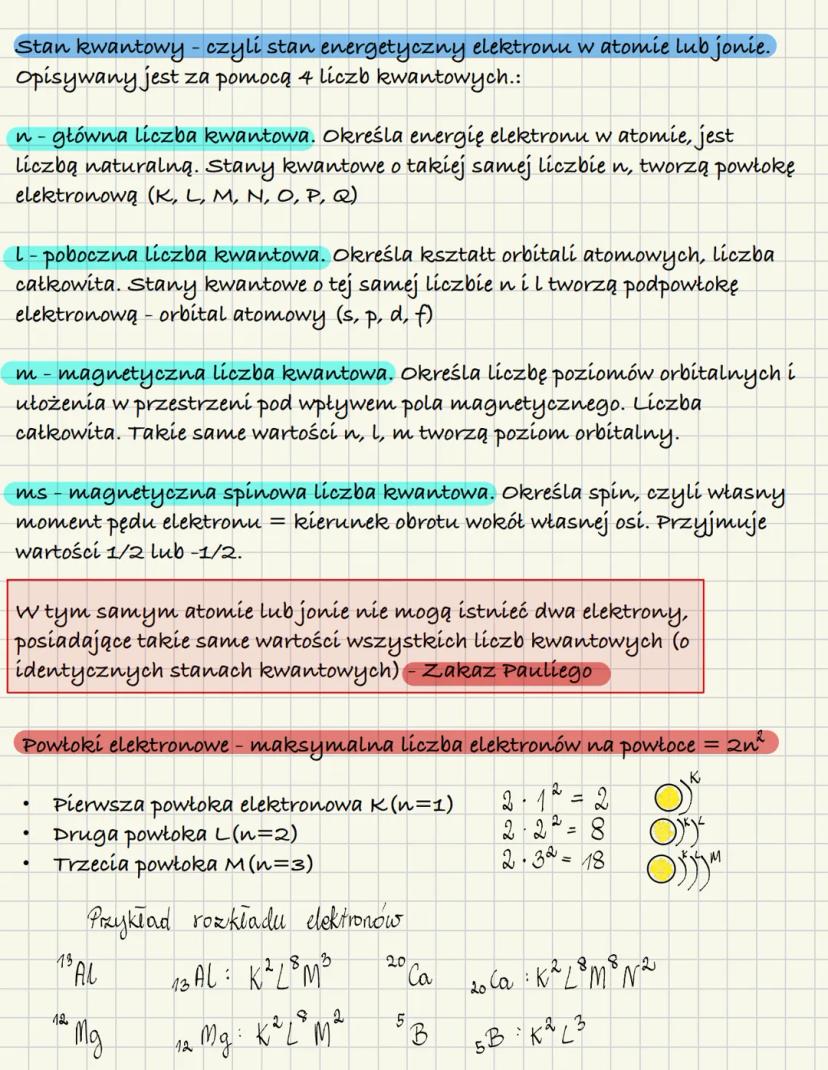 Stan kwantowy - czyli stan energetyczny elektronu w atomie lub jonie.
Opisywany jest za pomocą 4 liczb kwantowych.:
n - główna liczba kwantowa. Określa energię elektronu w atomie, jest
liczbą naturalną. Stany kwantowe o takiej samej liczbie n, tworzą powłokę
elektronową (K, L, M, N, O, P, Q)
l - poboczna liczba kwantowa. Określa kształt orbitali atomowych, liczba
całkowita. Stany kwantowe o tej samej liczbie n i l tworzą podpowłokę
elektronową - orbital atomowy (s, p, d, f)
m - magnetyczna liczba kwantowa. Określa liczbę poziomów orbitalnych i
ułożenia w przestrzeni pod wpływem pola magnetycznego. Liczba
całkowita. Takie same wartości n, l, m tworzą poziom orbitalny.
ms - magnetyczna spinowa liczba kwantowa. Określa spin, czyli własny
moment pędu elektronu = kierunek obrotu wokół własnej osi. Przyjmuje
wartości 1/2 lub -1/2.
W tym samym atomie lub jonie nie mogą istnieć dwa elektrony,
posiadające takie same wartości wszystkich liczb kwantowych (o
identycznych stanach kwantowych) - Zakaz Pauliego
Powłoki elektronowe - maksymalna liczba elektronów na powłoce = 2n²
• Pierwsza powłoka elektronowa K(n=1) 2·1² = 2 K
• Druga powłoka L(n=2) 2·2² = 8 K L
• Trzecia powłoka M(n=3) 2·3² = 18 K L M
Przykład rozkładu elektronów
¹³Al ₁₃Al: K²L⁸M³ ²⁰Ca ₂₀Ca: K²L⁸M⁸N²
¹²Mg ₁₂Mg: K²L⁸M² ⁵B ₅B: K²L³